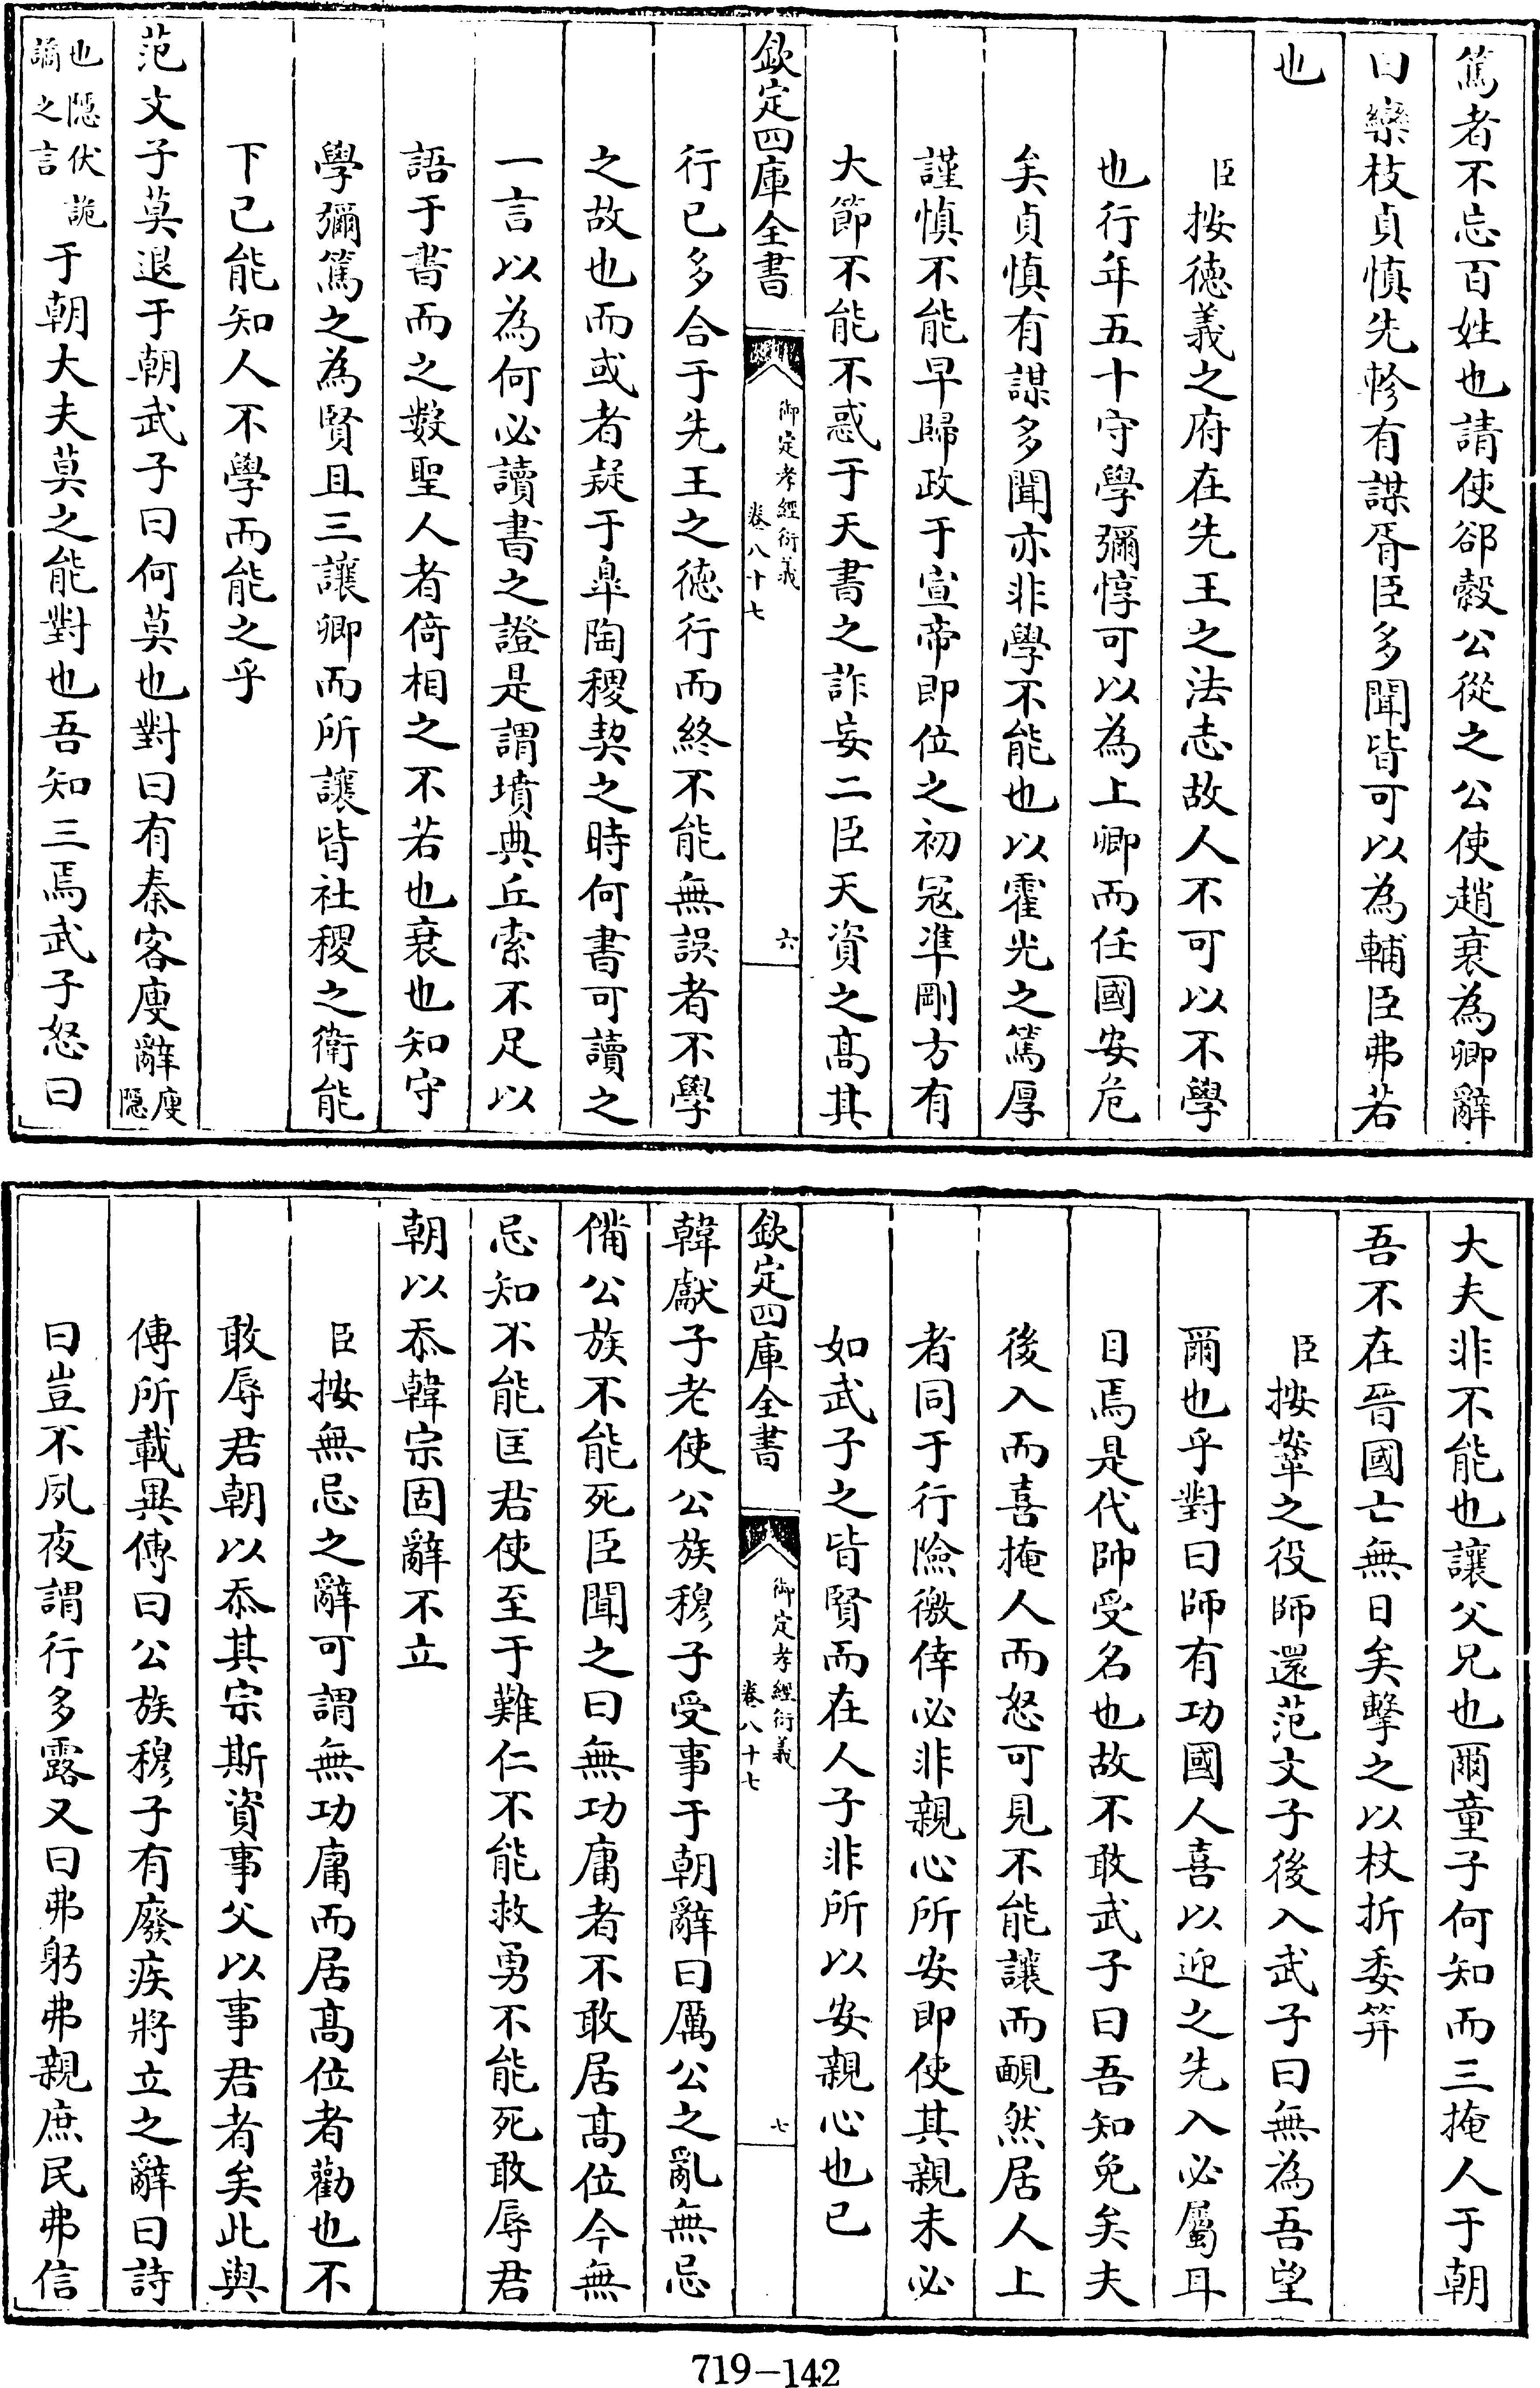 篤者不忘百姓也請使郤縠公從之公使趙衰為卿辭
曰欒枝貞慎先軫有謀胥臣多聞皆可以為輔臣弗若
也
臣按徳義之府在先王之法志故人不可以不學
也行年五十守學彌惇可以為上卿而任國安危
矣貞慎有謀多聞亦非學不能也以霍光之篤厚
謹慎不能早歸政于宣帝即位之初冦凖剛方有
大節不能不惑于天書之詐妄二臣天資之髙其
欽定四庫全書
御定孝經衍義
卷八十七
六
行已多合于先王之徳行而終不能無誤者不學
之故也而或者疑于臯陶稷契之時何書可讀之
一言以為何必讀書之證是謂墳典丘索不足以
語于書而之數聖人者倚相之不若也衰也知守
學彌篤之為賢且三讓卿而所讓皆社稷之衛能
下已能知人不學而能之乎
范文子莫退于朝武子曰何莫也對曰有秦客廋辭廋隱
也隱伏詭譎之言于朝大夫莫之能對也吾知三焉武子怒曰
大夫非不能也讓父兄也爾童子何知而三掩人于朝
吾不在晉國亡無日矣擊之以杖折委笄
臣按鞌之役師還范文子後入武子曰無為吾望
爾也乎對曰師有功國人喜以迎之先入必屬耳
目焉是代帥受名也故不敢武子曰吾知免矣夫
後入而喜掩人而怒可見不能讓而靦然居人上
者同于行險徼倖必非親心所安即使其親未必
如武子之皆賢而在人子非所以安親心也已
欽定四庫全書
御定孝經衍義
卷八十七
七
韓獻子老使公族穆子受事于朝辭曰厲公之亂無忌
備公族不能死臣聞之曰無功庸者不敢居髙位今無
忌知不能匡君使至于難仁不能救勇不能死敢辱君
朝以忝韓宗固辭不立
臣按無忌之辭可謂無功庸而居髙位者勸也不
敢辱君朝以忝其宗斯資事父以事君者矣此與
傳所載異傳曰公族穆子有廢疾將立之辭曰詩
曰豈不夙夜謂行多露又曰弗躬弗親庶民弗信
719-142